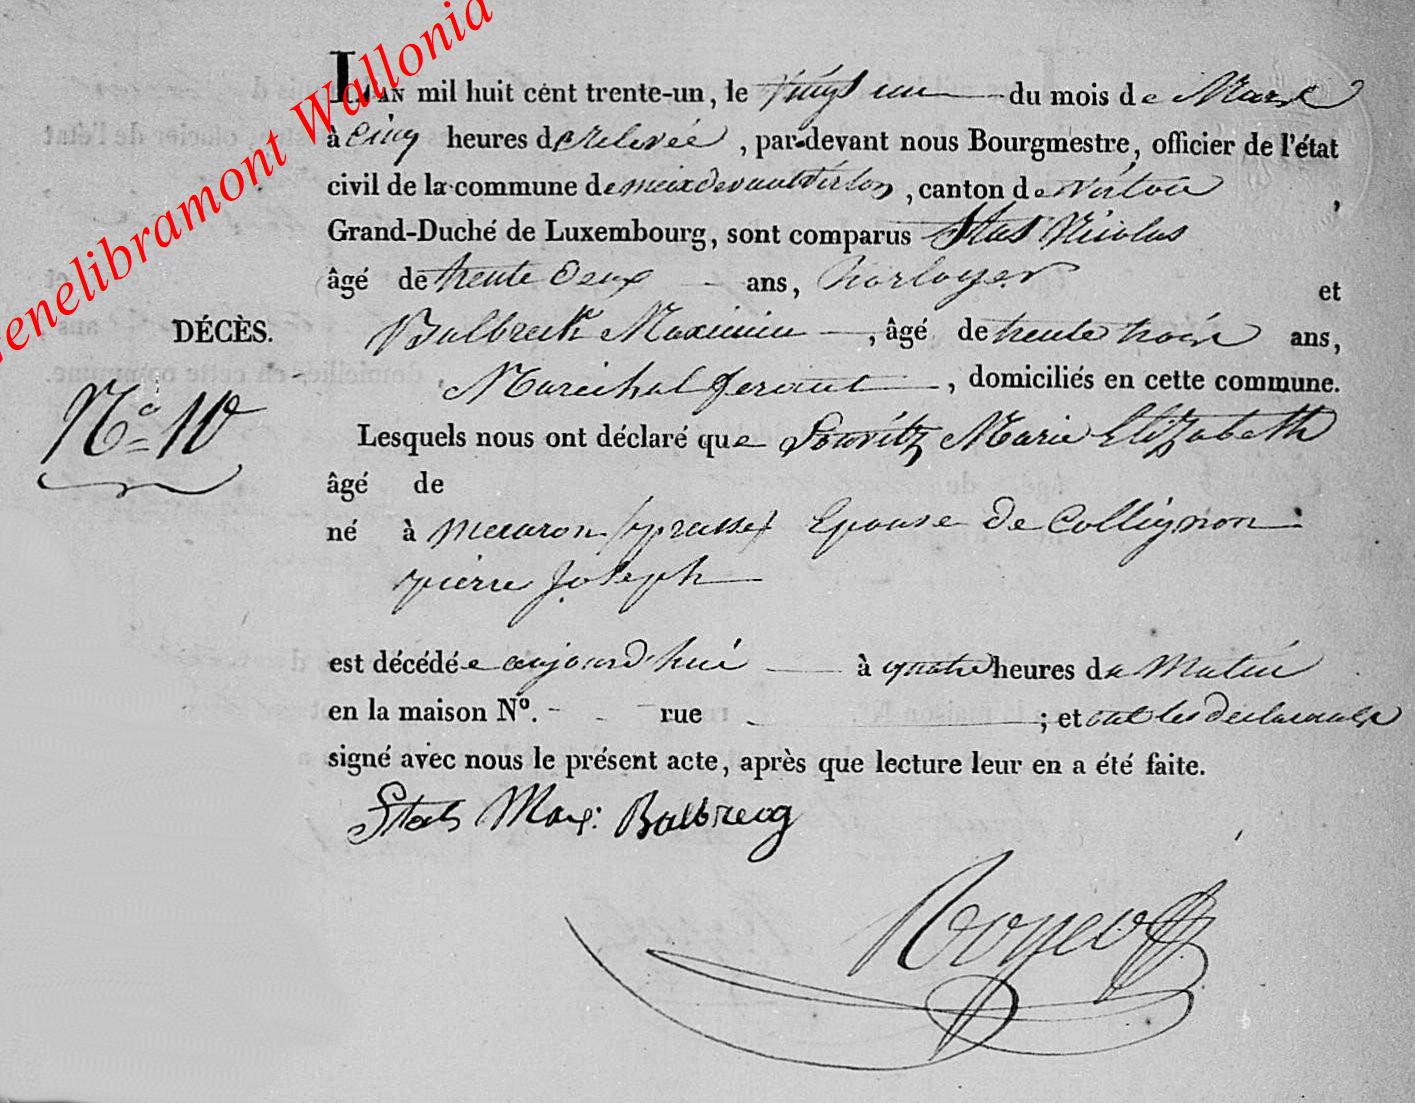 Genelibramont Wallonia
L'AN mil huit cent trente-un, le vingt un du mois de Mars
à cinq heures de relevée, par-devant nous Bourgmestre, officier de l'état
civil de la commune de meix devant virton, canton de virton,
Grand-Duché de Luxembourg, sont comparus Stas Nicolas
âgé de trente deux ans, horloger et
DÉCÈS. Balbreck Maximin, âgé de trente trois ans,
Marechal ferant, domiciliés en cette commune.
N° 10
Lesquels nous ont déclaré que Marie Elizabeth
âgé de
né à (prusse) Epouse de Collignon
pierre Joseph
est décédée aujourd'hui à quatre heures du Matin
en la maison N°. rue ; et ont les declarants
signé avec nous le présent acte, après que lecture leur en a été faite.
Stas Max: Balbrecq